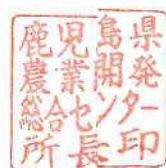 鹿児島県
農業開発
総合センター
所長印